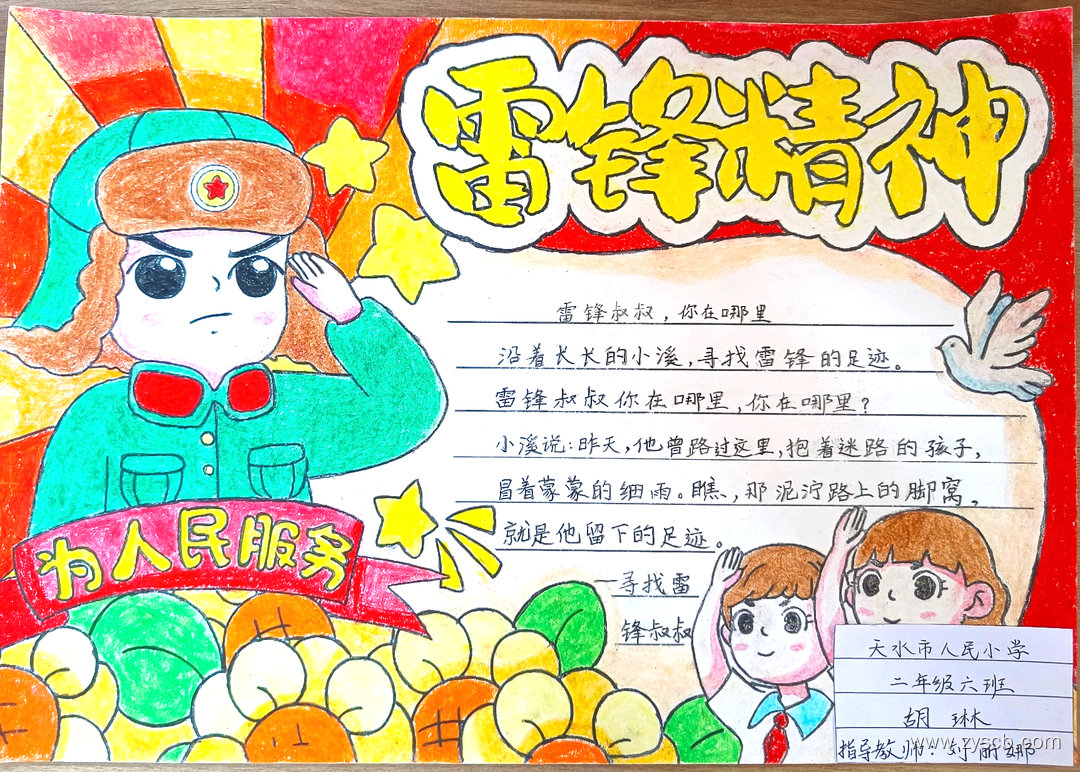 雷锋精神
雷锋叔叔，你在哪里
沿着长长的小溪，寻找雷锋的足迹。
雷锋叔叔你在哪里，你在哪里？
小溪说：昨天，他曾路过这里，抱着迷路的孩子，
冒着蒙蒙的细雨。瞧，那泥泞路上的脚窝，
就是他留下的足迹。
一寻找雷
锋叔叔
为人民服务
天水市人民小学
二年级六班
胡琳
指导教师：刘丽娜
www.zyscb.com